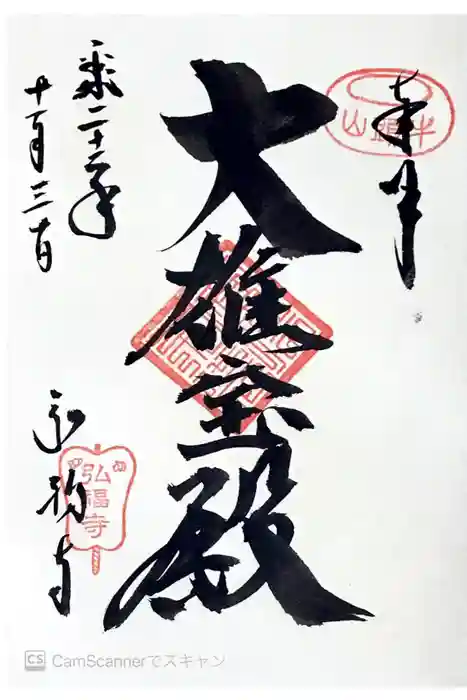 奉拝
牛頭山
大雄宝殿
平成二十二年
十一月三日
弘福寺
弘福寺
CS CamScannerでスキャン